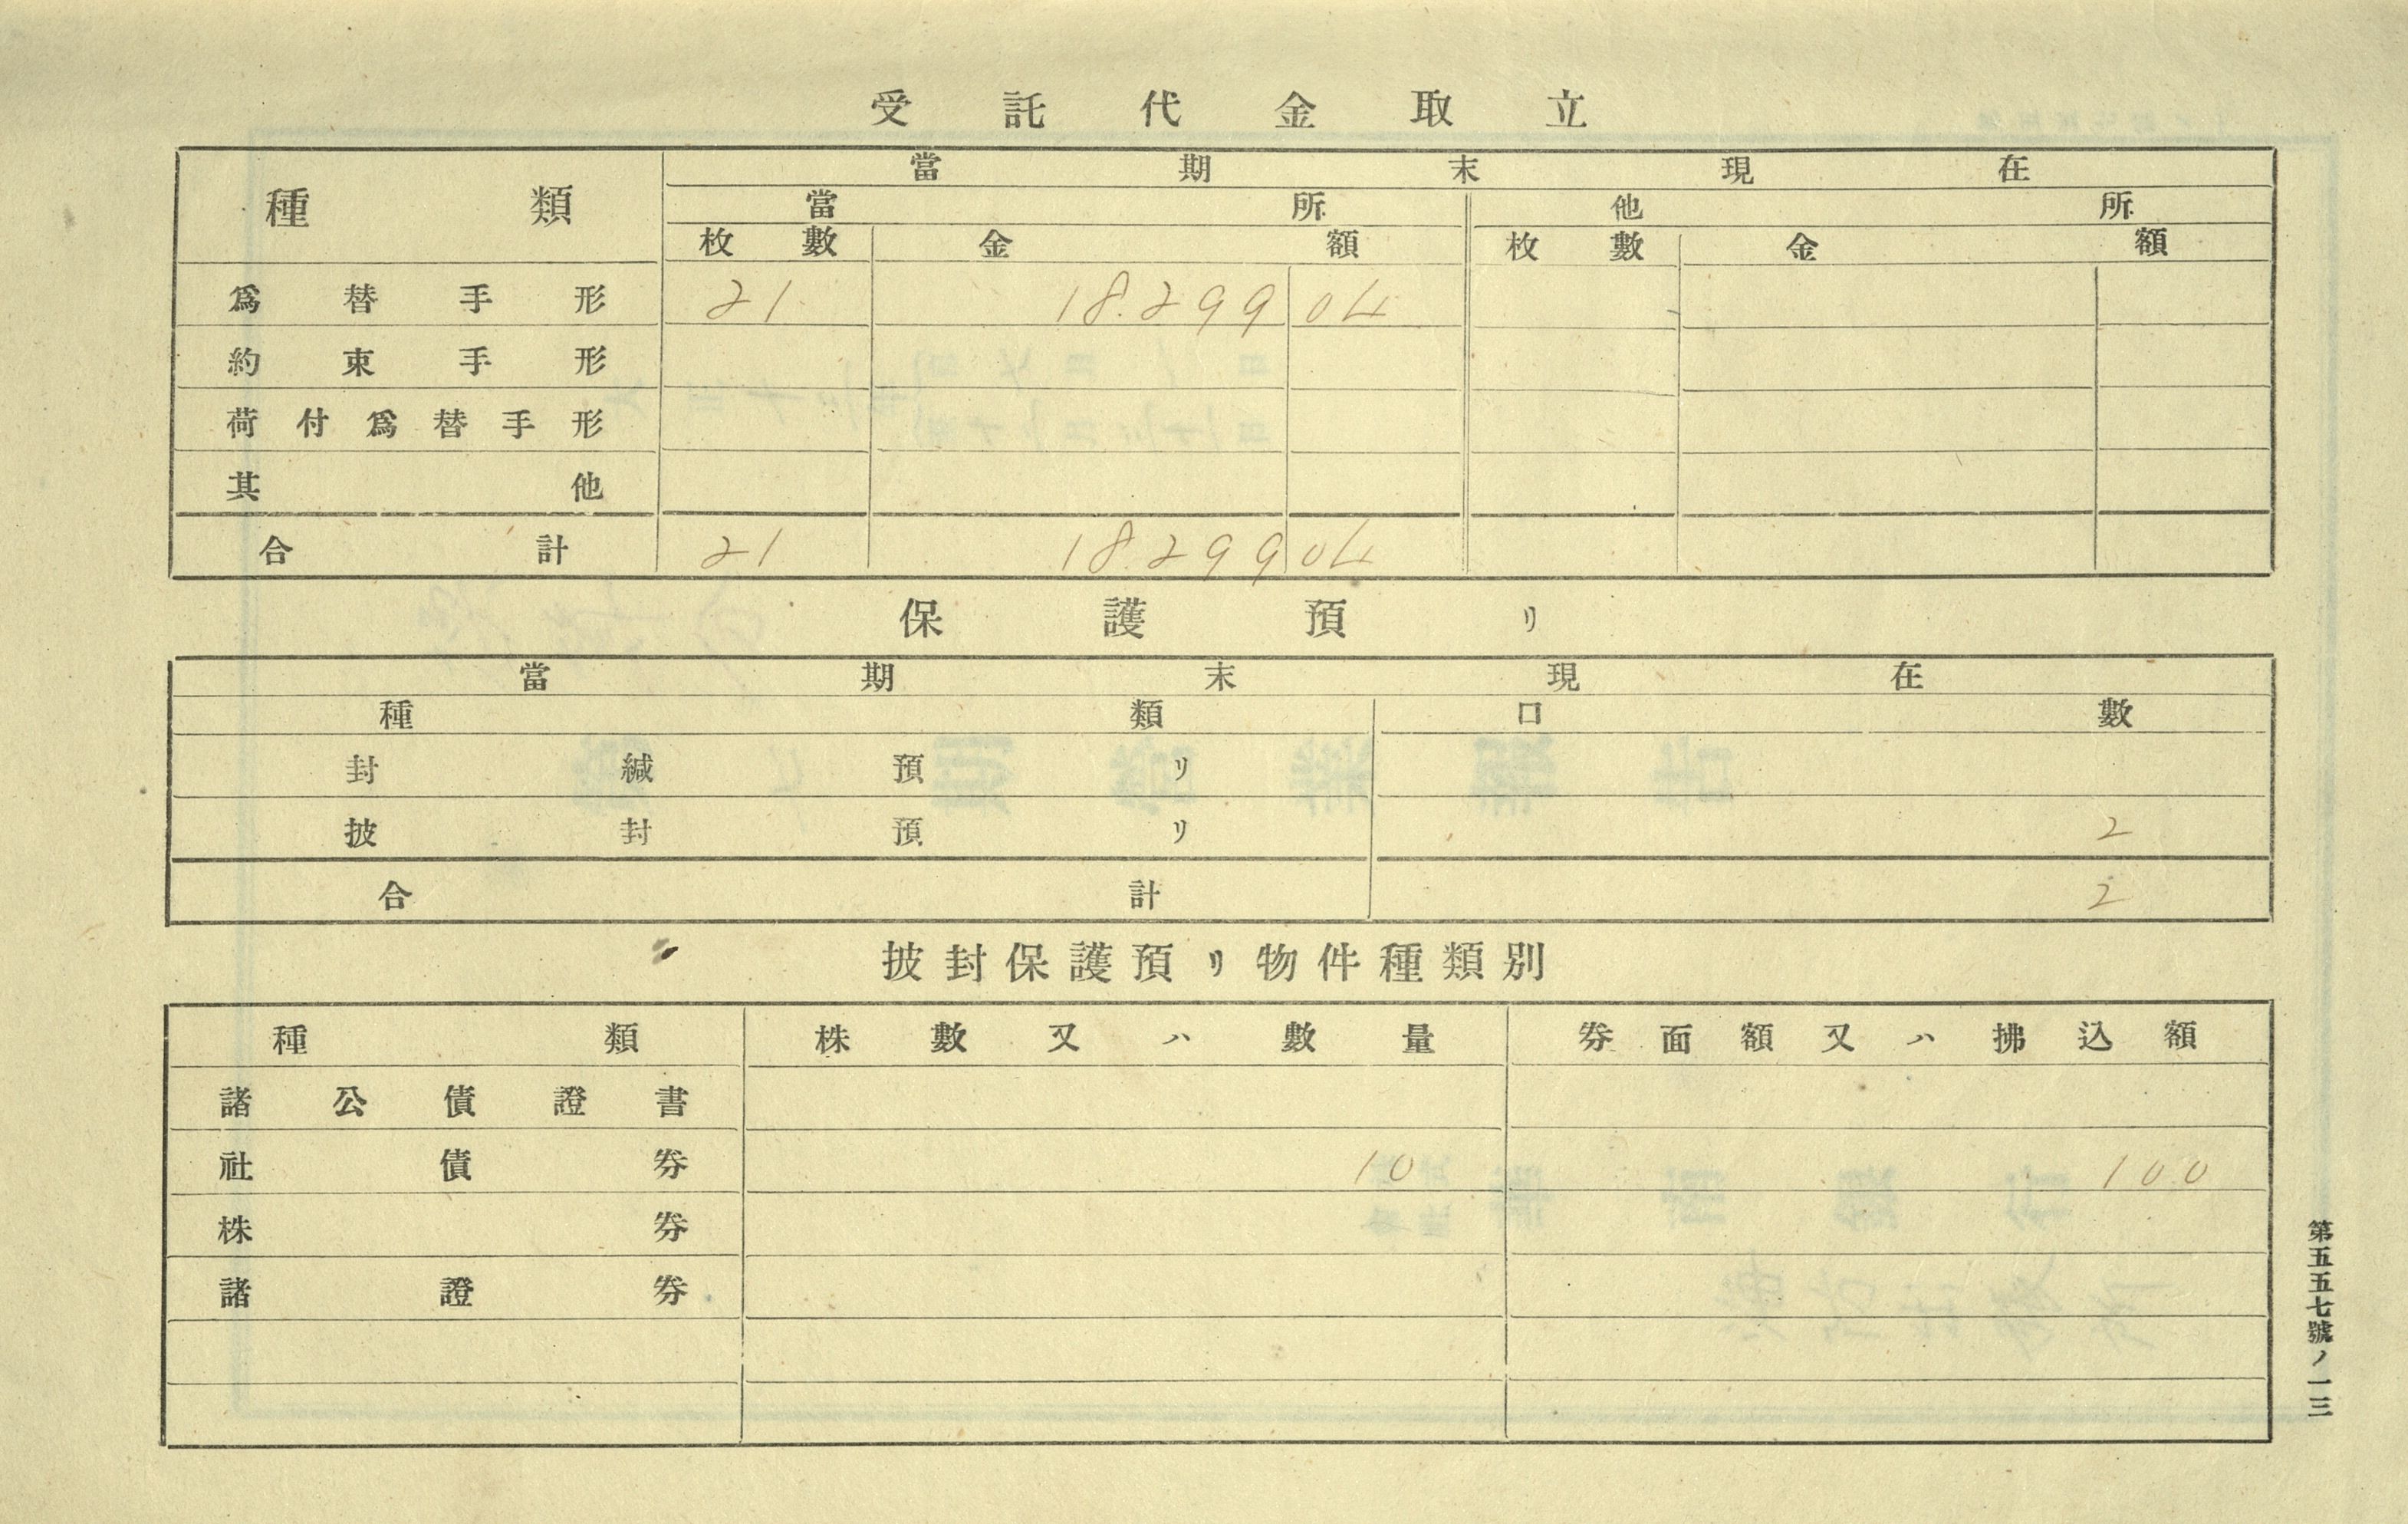 受託代金取立
種類 當期末現在
當所 他所
枚數 金額 枚數 金額
爲替手形 21 18.299 04
約束手形
荷付爲替手形
其他
合計 21 18.299 04
保護預リ
當期末現在
種類 口數
封緘預リ
披封預リ 2
合計 2
披封保護預リ物件種類別
種類 株數又ハ數量 券面額又ハ拂込額
諸公債證書
社債券 10 100
株券
諸證券
第五五七號ノ一三